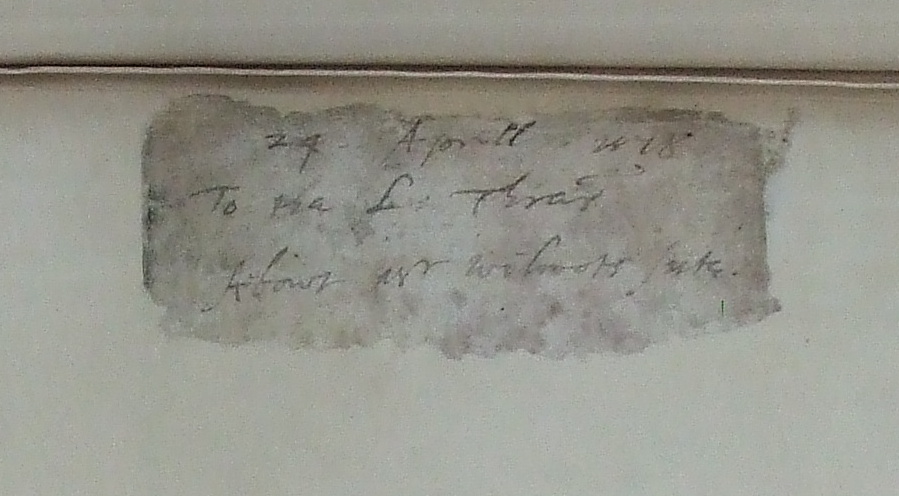 24 Aprill 1618
To the L: Thrār
About mr wilmotts sute.